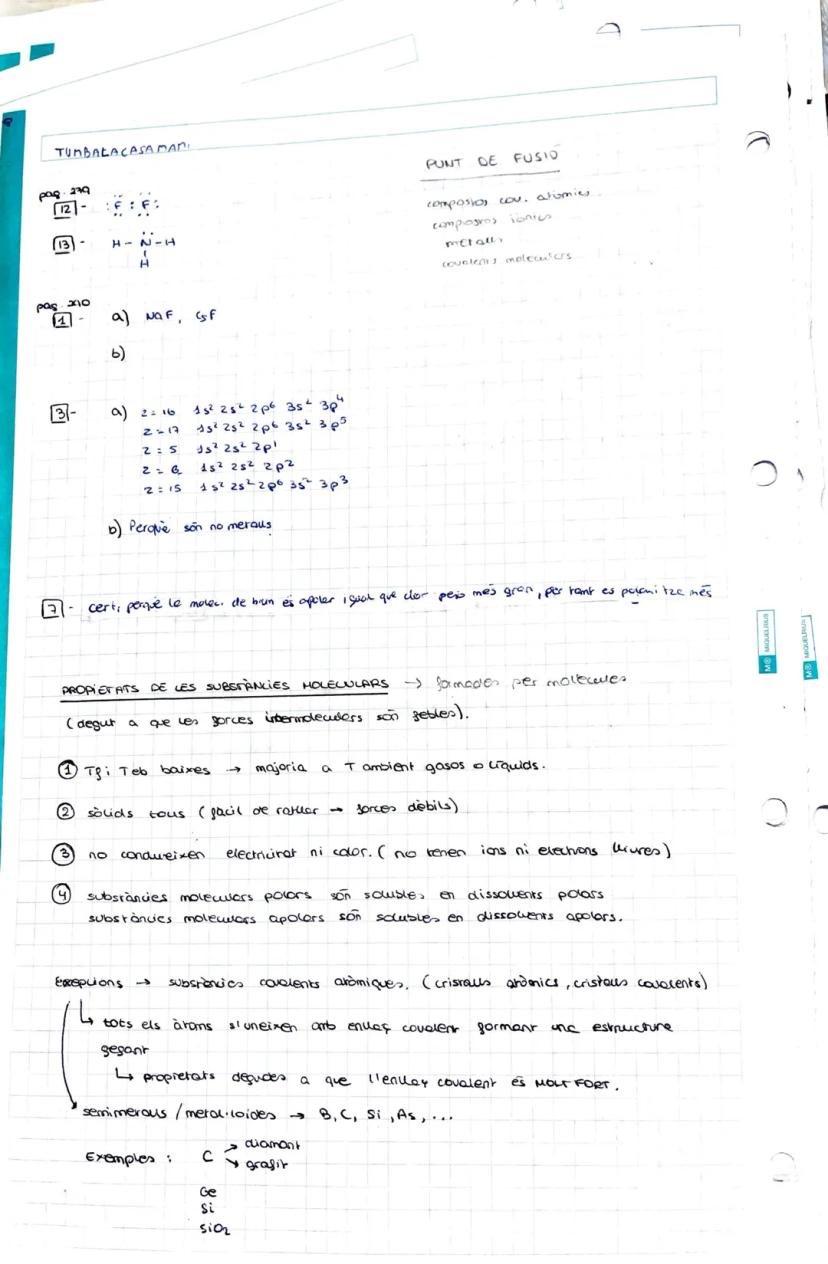 TUMBALACASAMAMI
PUNT DE FUSIÓ
compostos cov. atòmics
compostos iònics
metalls
covalents moleculars
pag. 279
12 - :F : F:
13 - H - N - H
H
pag. 290
1 - a) NaF, CsF
b)
3 - a) Z = 16 1s² 2s² 2p⁶ 3s² 3p⁴
Z = 17 1s² 2s² 2p⁶ 3s² 3p⁵
Z = 5 1s² 2s² 2p¹
Z = 6 1s² 2s² 2p²
Z = 15 1s² 2s² 2p⁶ 3s² 3p³
b) Perquè són no metalls
7 - cert, perquè la molec. de brom és apolar igual que clor però més gran, per tant es polaritza més
PROPIETATS DE LES SUBSTÀNCIES MOLECULARS → formades per molècules
(degut a que les forces intermoleculars són febles).
1 Tf i Teb baixes → majoria a T ambient gasos o líquids.
2 sòlids tous (fàcil de ratllar → forces dèbils)
3 no condueixen electricitat ni calor. (no tenen ions ni electrons lliures)
4 substàncies moleculars polars són solubles en dissolvents polars
substàncies moleculars apolars són solubles en dissolvents apolars.
Excepcions → substàncies covalents atòmiques. (cristalls atòmics, cristalls covalents)
↳ tots els àtoms s'uneixen amb enllaç covalent formant una estructura
gegant
↳ propietats degudes a que l'enllaç covalent és MOLT FORT.
semimetalls / metal·loides → B, C, Si, As, ...
Exemples : C → diamant
↘ grafit
Ge
Si
SiO₂
M® MIQUELRIUS
M® MIQUELRIUS